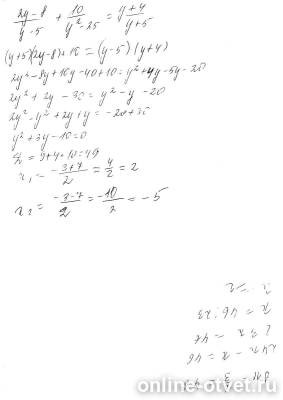 (2y-8)/(y-5) + 10/(y²-25) = (y+4)/(y+5)
(y+5)(2y-8)+10 = (y-5)(y+4)
2y²-8y+10y-40+10=y²+4y-5y-20
2y²+2y-30=y²-y-20
2y²-y²+2y+y=-20+30
y²+3y-10=0
=9+40=49
(-3+7)/2 = 4/2 = 2
(-3-7)/2 = -10/2 = -5
online-otvet.ru